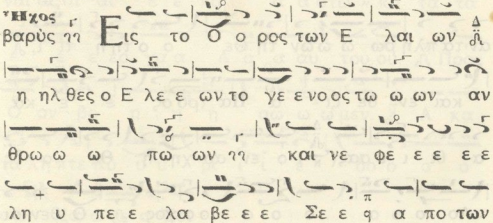 Ἦχος
βαρὺς Εις το Ο ο ρος των Ε λαι ων
η ηλ θες ο Ε λε ε ων το γε ε νο ος τω ω ων αν
θρω ω ω πω ων και νε φε ε ε ε ε
λη υ πε ε λα βε ε ε Σε ε α πο των